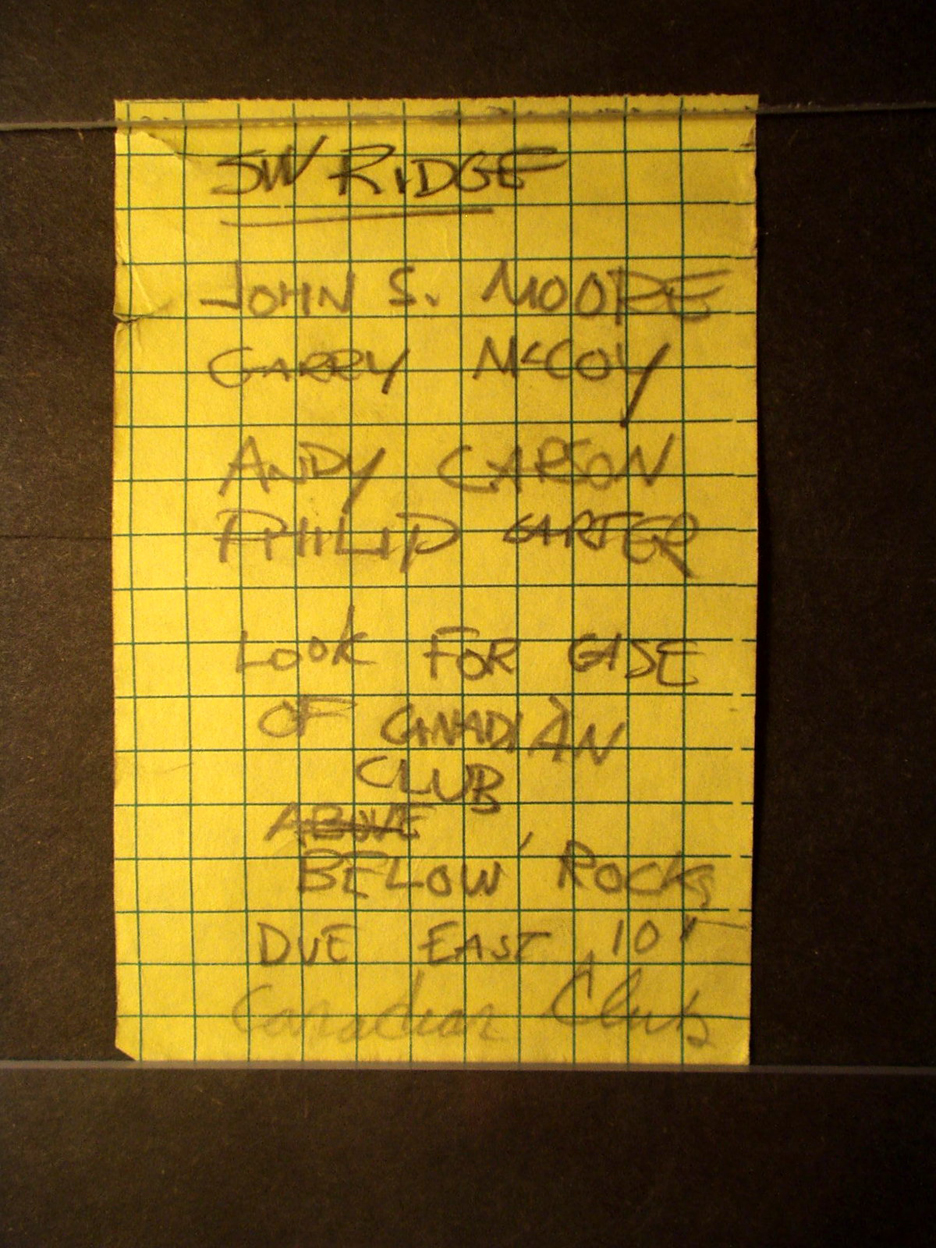 SW RIDGE
JOHN S. MOORE
GARRY McCOY
ANDY CARSON
PHILIP CARTER
LOOK FOR CASE
OF CANADIAN
CLUB
ABOVE
BELOW ROCKS
DUE EAST 10'
Canadian Club